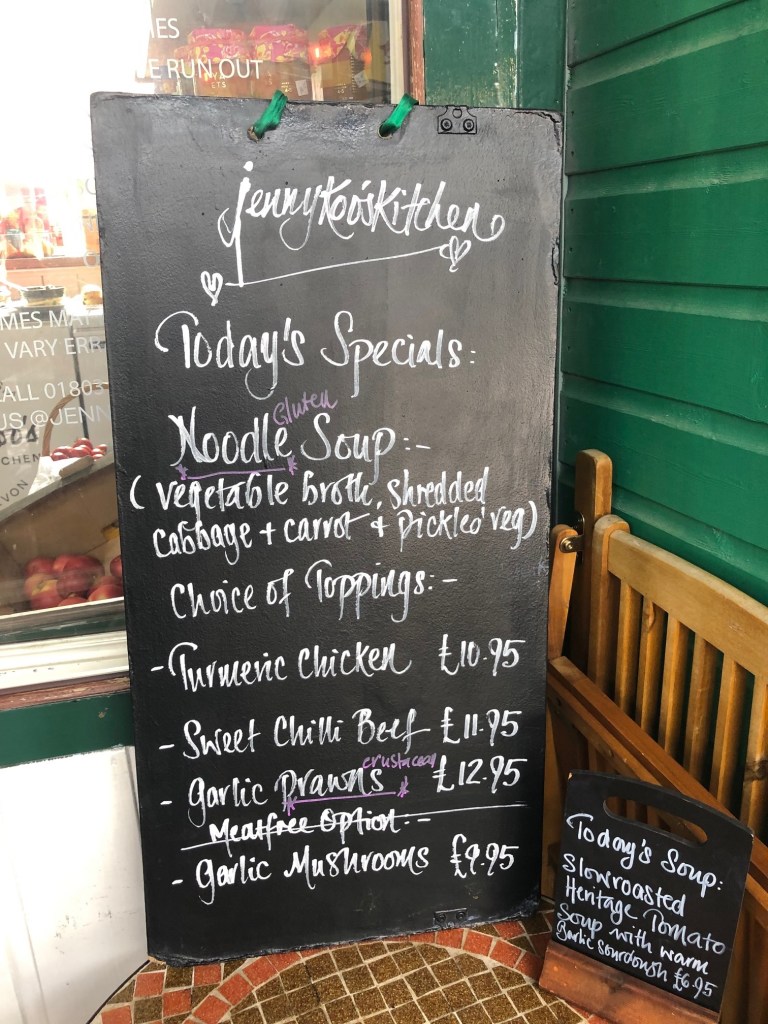 MES
E RUN OUT
jennykoo'skitchen
Today's Specials:
Gluten
Noodle Soup:-
(vegetable broth, shredded
cabbage + carrot + pickled veg)
Choice of Toppings:-
- Turmeric Chicken £10.95
- Sweet Chilli Beef £11.95
crustacean
- Garlic Prawns £12.95
Meatfree Option:-
- Garlic Mushrooms £9.95
MES MA
VARY ERR
ALL 01803
US@JENN
CHEN
VON
Today's Soup:
Slowroasted
Heritage Tomato
Soup with warm
Garlic sourdough £6.95